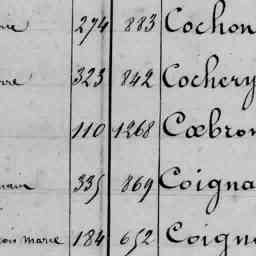 274 883 Cochon
323 842 Cochery
110 1268 Cœbron
335 869 Coigna
marie 184 652 Coign